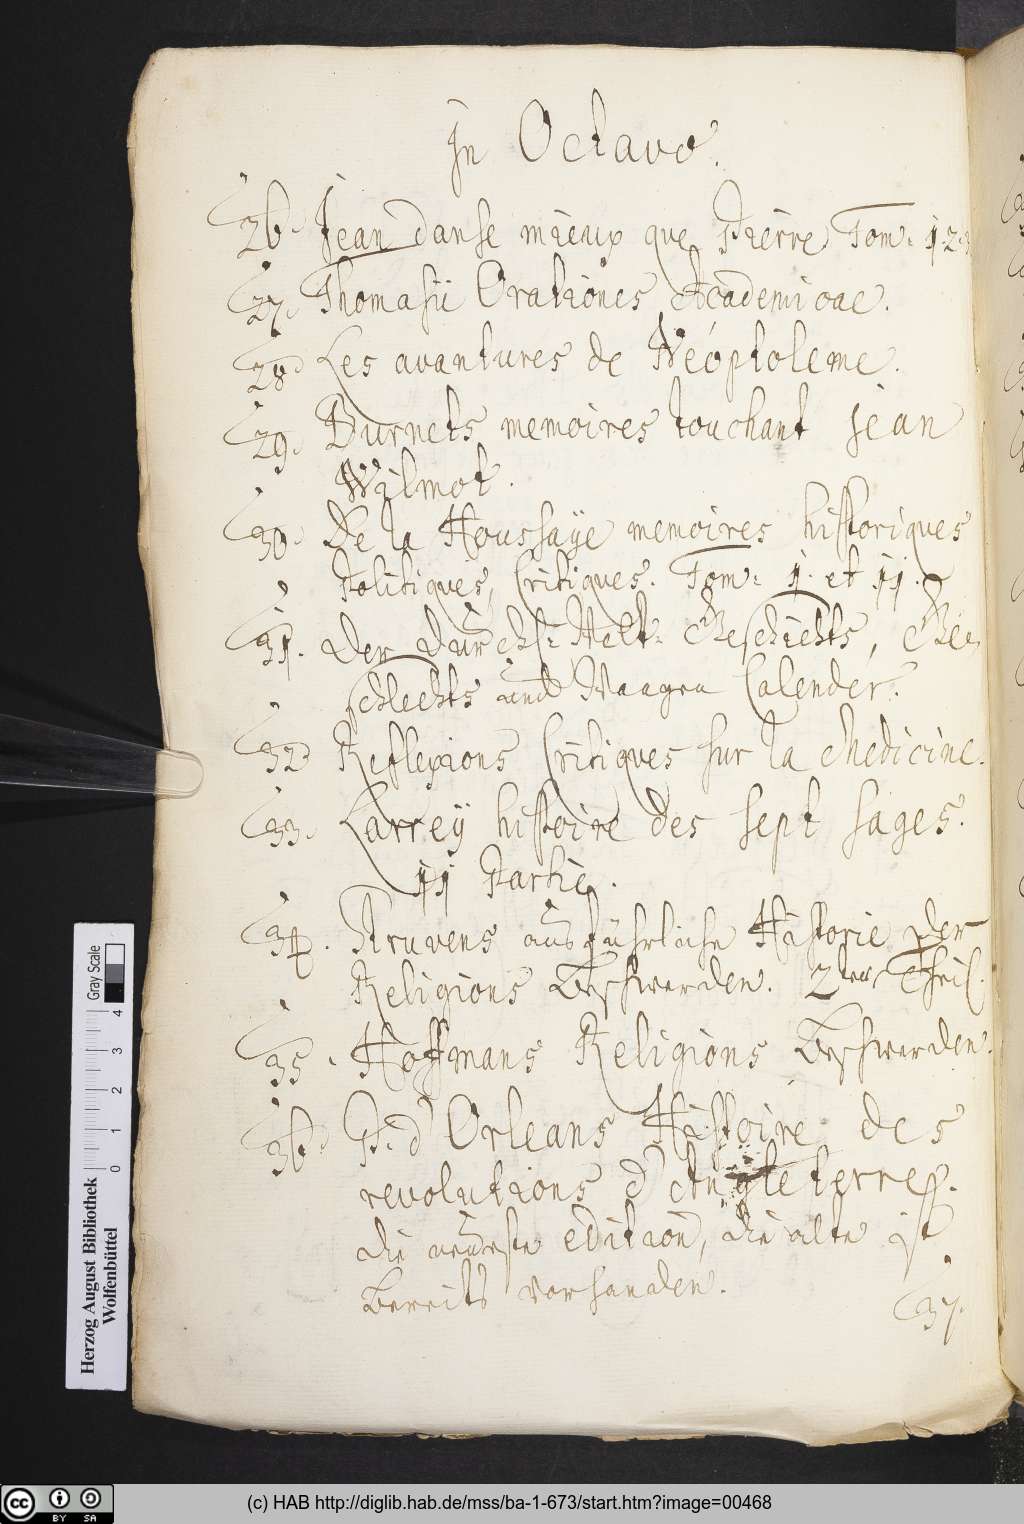 In Octavo.
26. Jean danse mieux que Pierre Tom: 1. 2. 3
27. Thomasii Orationes Academicae.
28 Les avantures de Néoptoleme.
29. Burnets memoires touchant jean
Wilmot.
30. De la Houssaÿe memoires historiques
Politiques, Critiques. Tom: 1. et 11.
31. Der durchl: Welt: Geschichts, Ge-
schlechts und Waapen Calender.
32 Reflexions Critiques sur la Medicine.
33. Larreÿ histoire des sept sages.
11 Partie.
34. Struvens ausführliche Historie der
Religions Beschwerden. 2ter Theil.
35. Hoffmans Religions Beschwerden.
36. P. d'Orleans Histoire des
revolutions d'Angleterre.
die neueste edition, die alte ist
bereits vorhanden.
37.
Gray Scale
0 1 2 3 4
Herzog August Bibliothek
Wolfenbüttel
cc BY SA
(c) HAB http://diglib.hab.de/mss/ba-1-673/start.htm?image=00468